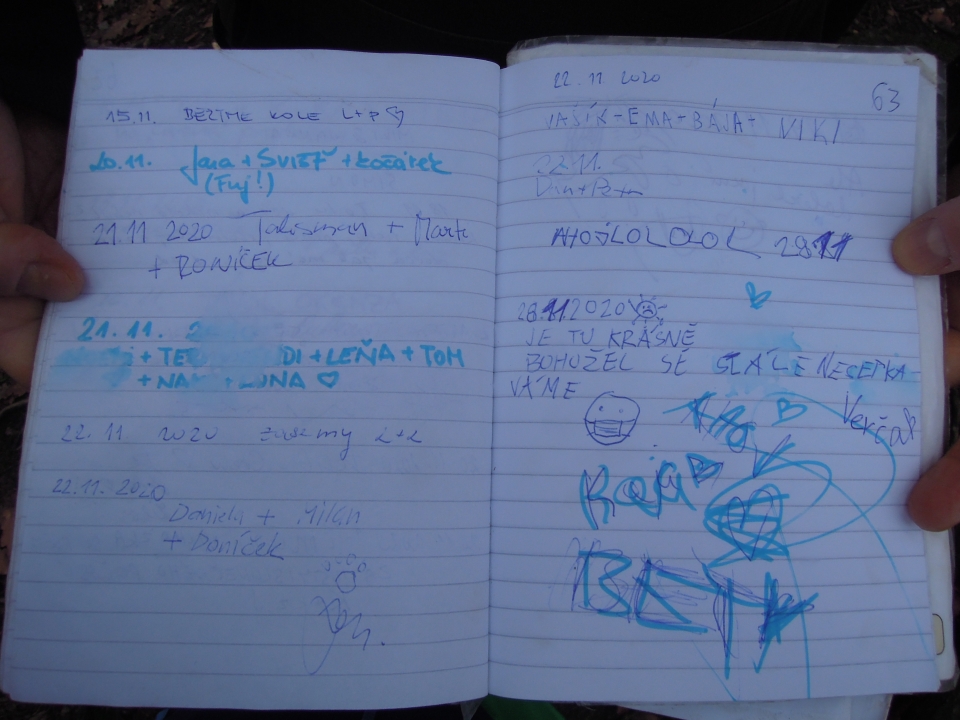 15.11. BĚŽÍME KOLE L+P
20.11. Jana + SVIŠŤ + kočárek
(Fuj!)
21.11 2020 Talisman + Mark
+ RONÍČEK
21.11.
+ DI + LEŇA + TOM
+ LUNA ♡
22. 11 2020 zase my L+L
22.11. 2020
Daniela + Milan
+ Doníček
22.11 2020
63
VAŠÍK - EMA - BÁJA - VIKI
22.11.
AHOJLOLOLOL 28 11
28.11 2020
JE TU KRÁSNĚ
BOHUŽEL SE STÁLE NECEPKA
VÁME
Verčat
Kaja
BETY